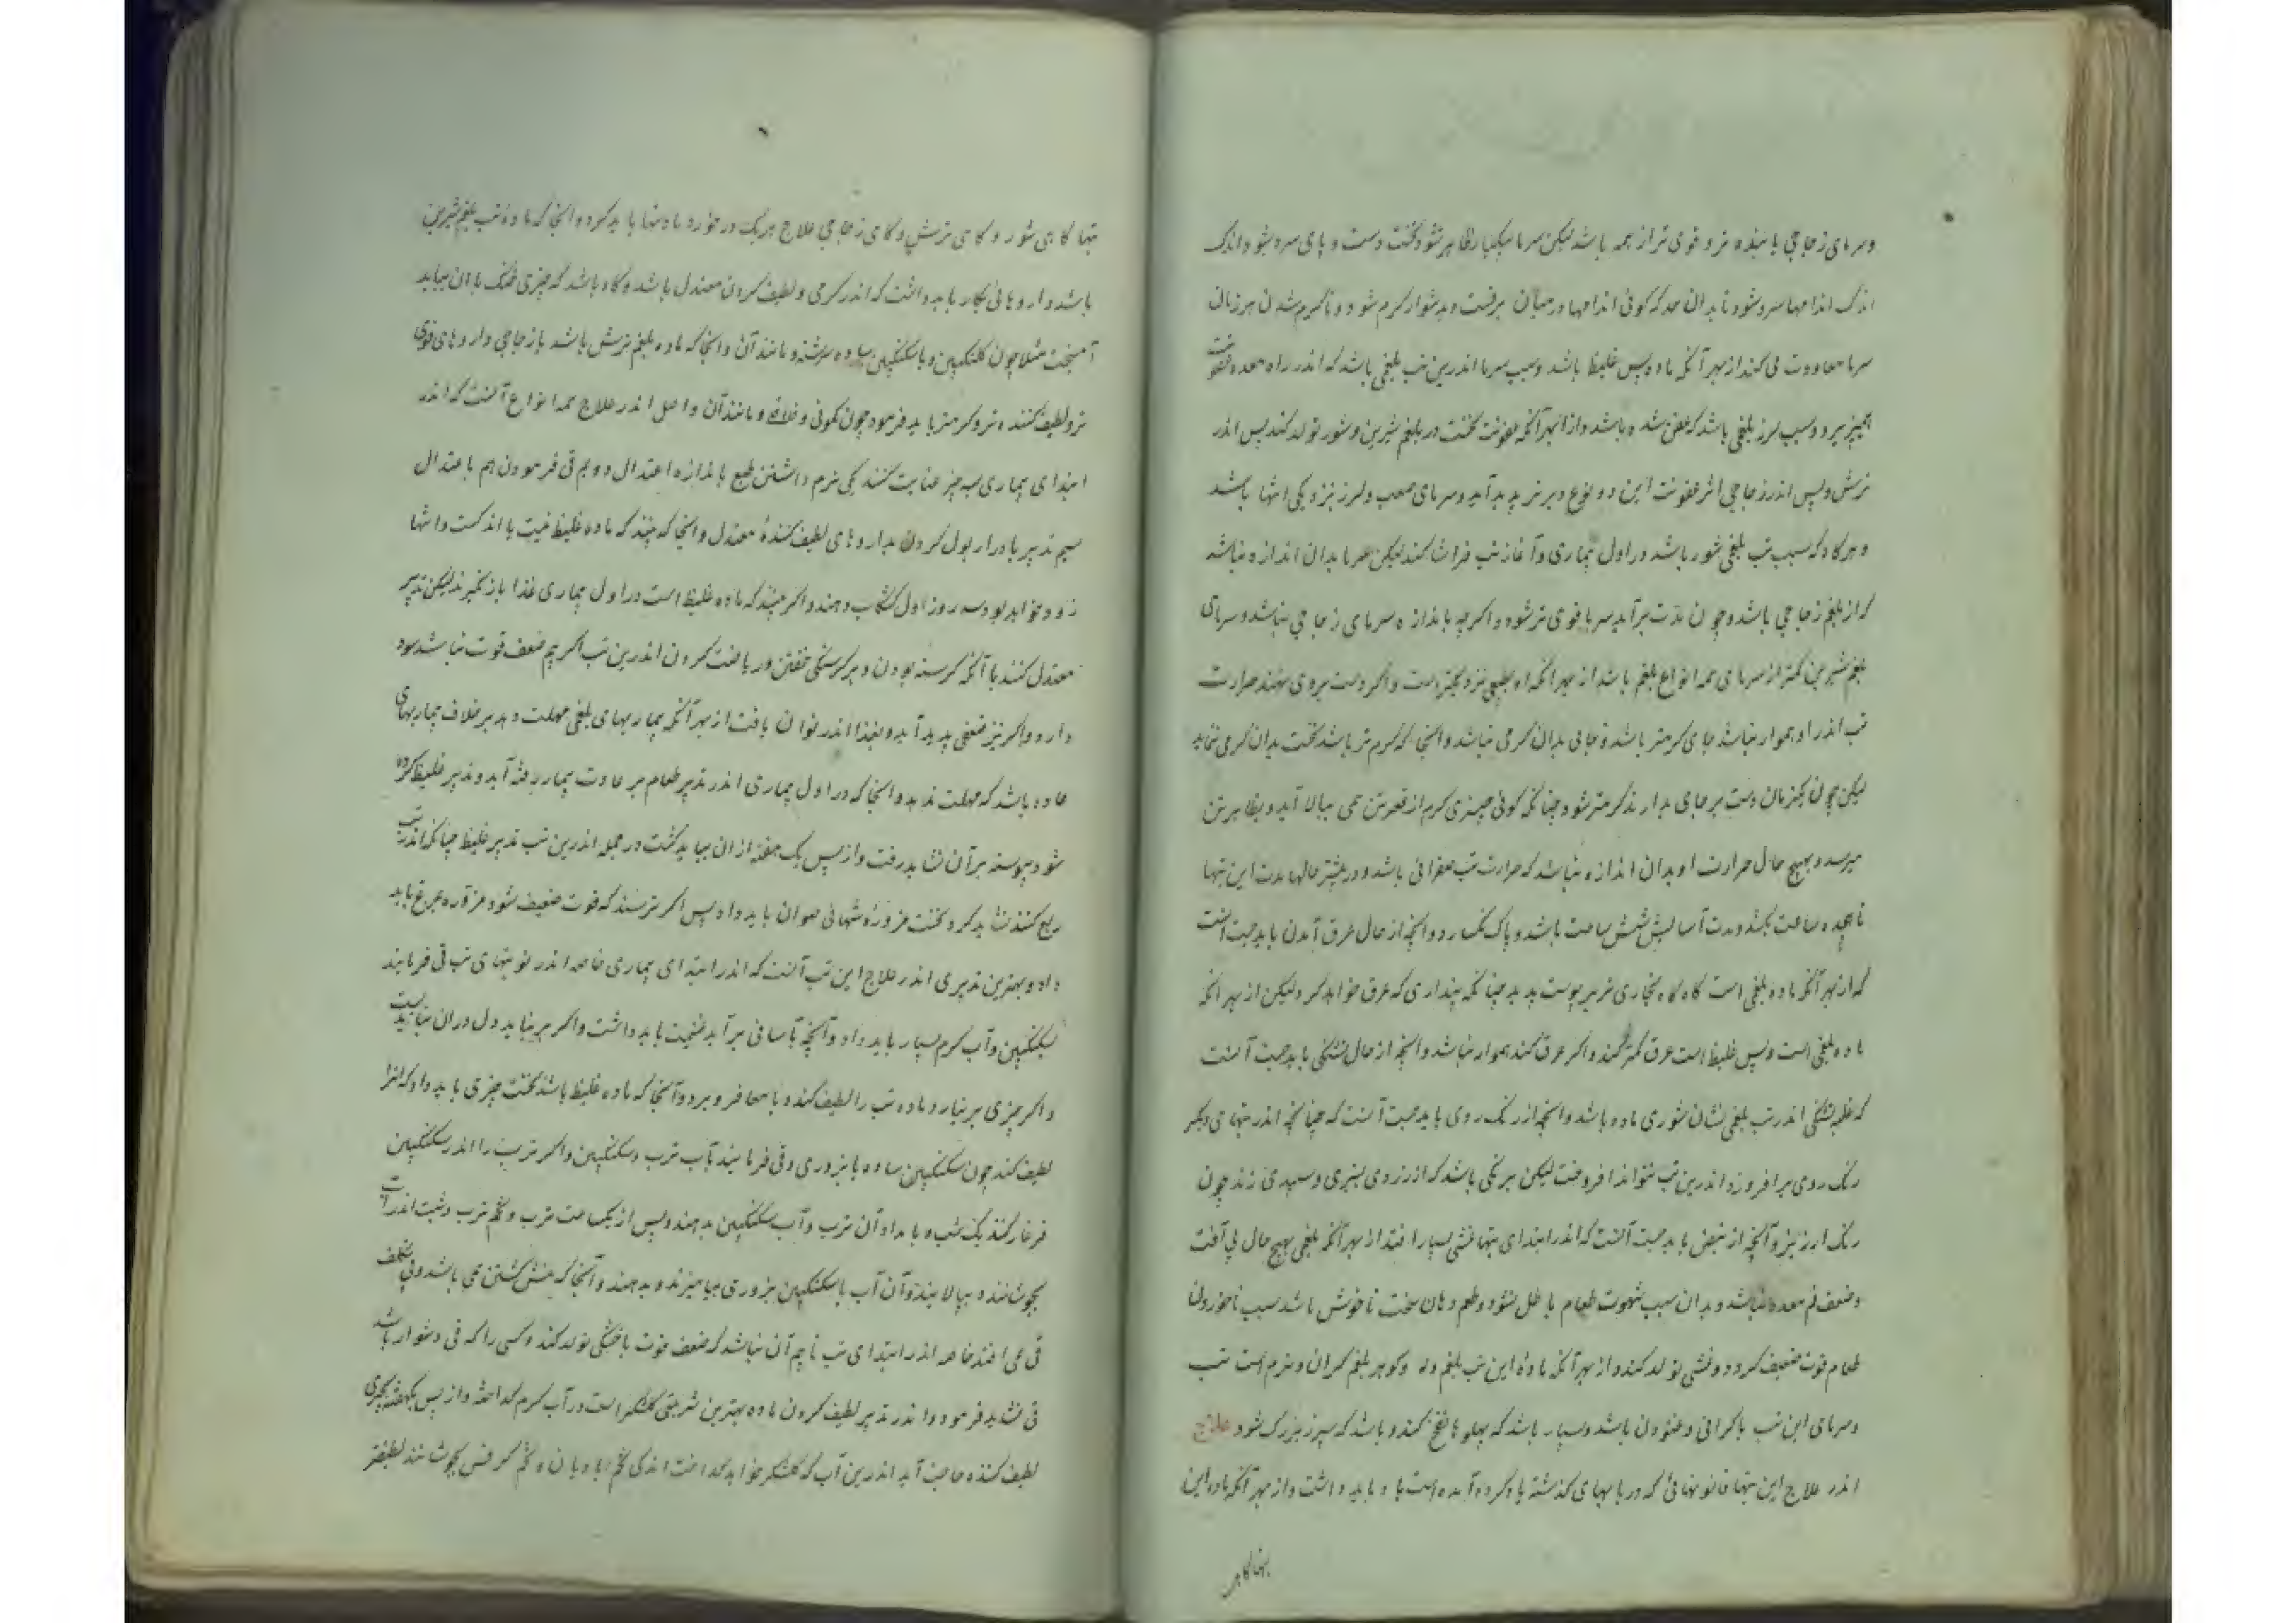 وسرمای زجاجی پاینده تر و قوی تر از همه باشد لیکن سرما بیکبار ظاهر نشود نخست دست و پای سرد شود و اندک
اندک اندامها سرد شود تا بدان حد که کوئی اندامها در میان برفست و بدشوار کرم شود و تا کرم شدن هر زمان
سرما معاودت می کند از بهر آنکه ماده پس غلیظ باشد و سبب سرما اندرین تب بلغمی باشد که اندر راه معده
و سبب لرز بلغمی باشد که عفن شده باشد و از بهر آنکه عفونت نخست در بلغم شیرین و شور تولد کند پس اندر
ترش و پس اندر زجاجی اثر عفونت این دو نوع دیرتر پدید آید و سرمای صعب و لرز نزدیکی انتها باشد
و هرکاه که سبب تب بلغمی شور باشد در اول بیماری و آغاز تب فراشا کند لیکن سرما بدان اندازه نباشد
که از بلغم زجاجی باشد و چون مدت برآید سرما قوی تر شود و اکرچه باندازه سرمای زجاجی نباشد و سرمای
بلغم شیرین کمتر از سرمای همه انواع بلغم باشد از بهر آنکه او بطبع نزدیکتر است و اکر دست برو می نهند حرارت
تب اندر او هموار نباشد جای کرمتر باشد و جائی بدان کرمی نباشد و انجا که کرم تر باشد نخست بدان کرمی ننماید
لیکن چون یکزمان دست بر جای بدارند کرمتر شود چنانکه کوئی چیزی کرم از قعر تن همی ببالا آید و بظاهر تن
میرسد و بهیچ حال حرارت او بدان اندازه نباشد که حرارت تب صفرائی باشد و در بیشتر حالها مدت این تبها
تا هجده ساعت بکشد و مدت آسایش شش ساعت باشد و پاک نکسارد و انچه از حال عرق آمدن باید جست آنست
که از بهر آنکه ماده بلغمی است کاه کاه بخاری تر بر پوست پدید چنانکه پنداری که عرق خواهد کرد ولیکن از بهر آنکه
ماده بلغمی است و پس غلیظ است عرق کمتر کند و اکر عرق کند هموار نباشد و انچه از حال تشنکی باید جست آنست
که غلبه تشنکی اندر تب بلغمی نشان شوری ماده باشد و انچه از رنک روی باید جست آنست که چنانچه اندر تبهای دیکر
رنک روی برافروزد اندرین تب نتواند افروخت لیکن برنکی باشد که از زردی بسبزی و سپیدی زند چون
رنک ارزیز و آنچه از نبض باید جست آنست که اندر ابتدای تبها غشی بسیار افتد از بهر آنکه بلغمی بهیچ حال بی آفت
و ضعف فم معده نباشد و بدان سبب شهوت طعام باطل شود و طعم دهان سخت ناخوش باشد بسبب ناخوردن
طعام قوت ضعیف کردد و غشی تولد کند و از بهر آنکه ماده این تب بلغم و کوهر بلغم کران و نرم است تب
و سرمای این تب با کرانی و غنودن باشد و بسیار باشد که پهلوها نفخ کند و باشد که سپرز بزرک شود علاج
اندر علاج این تبها قانونهائی که در بابهای کذشته یاد کرده آمده است یاد باید داشت و از بهر آنکه ماده این
تبها کاهی شور و کاهی ترش و کاهی زجاجی علاج هر یک در خورد ماده تنها باید کرد و انجا که ماده تب بلغم شیرین
باشد داروهائی بکار باید داشت که اندر کرمی و لطیف کردن معتدل باشد و کاه باشد که چیزی خنک با ان بباید
آمیخت مثلا چون کلنکبین و با سکنکبین ساده سرشته و مانند آن و انجا که ماده بلغم ترش باشد یا زجاجی داروهای قوی
تر و لطیف کننده تر و کرمتر باید فرمود چون کمونی و فلافلی و مانند آن و اصل اندر علاج همه انواع آنست که اندر
ابتدای بیماری بسه چیز عنایت کنند یکی نرم داشتن طبع باندازه اعتدال دویم قی فرمودن هم باعتدال
سیم تدبیر یا ادرار بول کردن بداروهای لطیف کنندهٔ معتدل و انجا که بیند که ماده غلیظ نیست یا اندکست و انتها
زود خواهد بود سه روز اول کشکاب دهند و اکر بیند که ماده غلیظ است در اول بیماری غذا باز نکیرند لیکن تدبیر
معتدل کنند با آنکه کرسنه بودن و بر کرسنکی خفتن و ریاضت کردن اندرین تب اکر بیم ضعف قوت نباشد سود
دارد و اکر نیز ضعفی پدید آید بغذا اندر توان یافت از بهر آنکه بیماریهای بلغمی مهلت دهد بر خلاف بیماریهای
حاده باشد که مهلت ندهد و انجا که در اول بیماری اندر تدبیر طعام بر عادت بیمار رفته آید و تدبیر غلیظ کرده
شود پیوسته بر آن نشاید رفت و از پس یک هفته از ان بباید کشت در جمله اندرین تب تدبیر غلیظ چنانکه اندر تب
ربع کنند نشاید کرد و نخست مزورهٔ شهائی صوان باید داد پس اکر ترسند که قوت ضعیف شود مزوره مرغ باید
داد و بهترین تدبیری اندر علاج این تب آنست که اندر ابتدای بیماری خاصه اندر نوبتهای تب قی فرمایند
سکنکبین و آب کرم بسیار باید داد و آنچه بآسانی برآید غنیمت باید داشت و اکر برنیاید دل دران نباید بست
و اکر چیزی برنیارد ماده تب را لطیف کند و بامعا فرو برد و آنجا که ماده غلیظ باشد نخست چیزی باید داد که انرا
لطیف کند چون سکنکبین ساده یا بزوری و قی فرمایند بآب ترب و سکنکبین و اکر ترب را اندر سکنکبین
فرغار کنند یک شب و بامداد آن ترب و آب سکنکبین بدهند و پس از یکساعت ترب و تخم ترب و شبت اندر آب
بجوشانند و بپالایند و آن آب با سکنکبین بزوری بیامیزند و بدهند و آنجا که منش کشتن می باشد و بی تکلف
قی می افتد خاصه اندر ابتدای تب تا بیم آن نباشد که ضعف قوت یا خشکی تولد کند و کسی را که قی دشوار باشد
قی نشاید فرمود و اندر تدبیر لطیف کردن ماده بهترین شربتی کلشکر است در آب کرم کداخته و از پس یکهفته بچیزی
لطیف کننده حاجت آید اندرین آب که کلشکر خواهد کداخت اندکی تخم بادیان و تخم کرفس بجوشانند لطیفتر
تبها کاهی